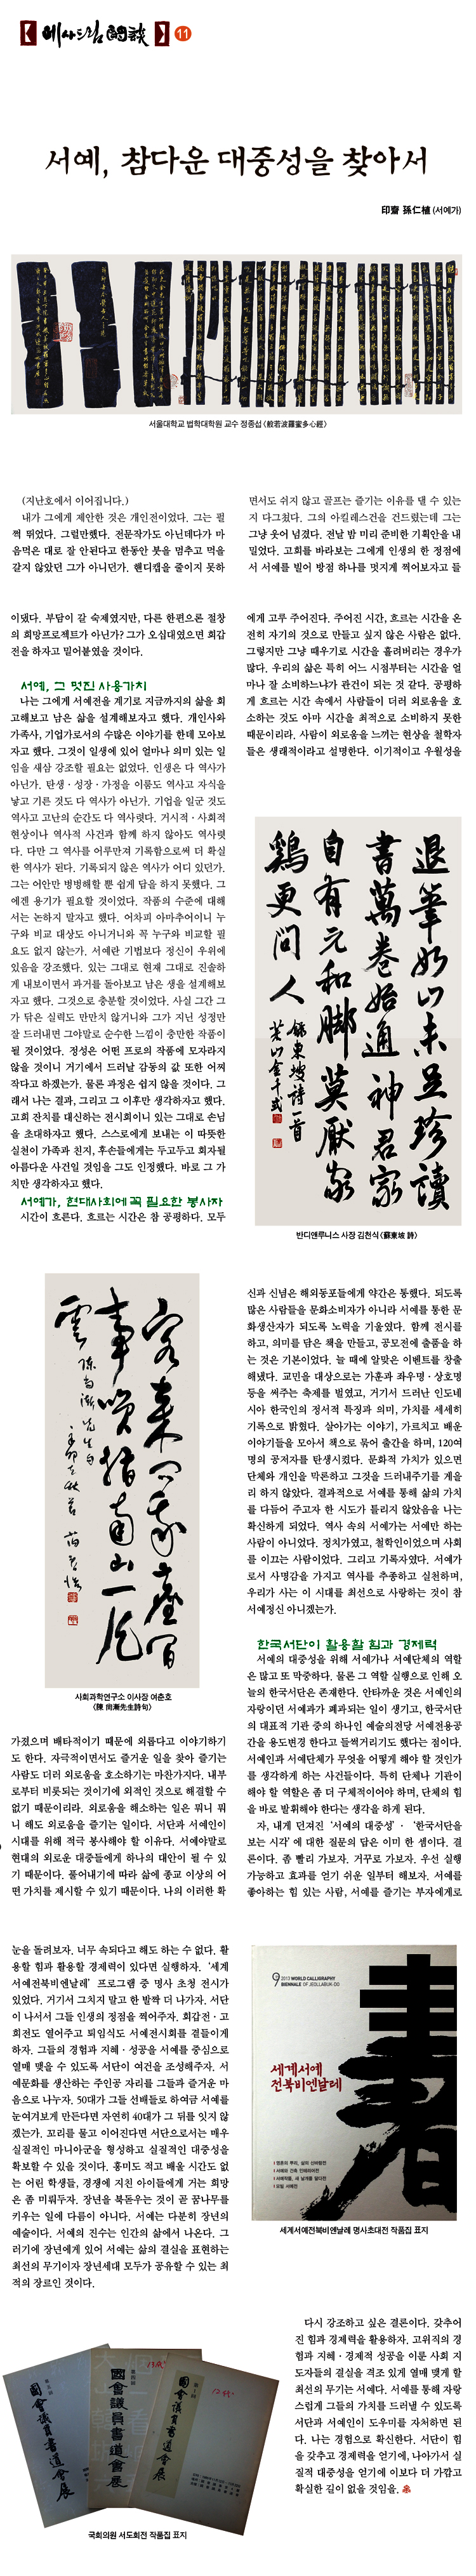 【예사드림 閒談】 11
서예, 참다운 대중성을 찾아서
印齋 孫仁植 (서예가)
서울대학교 법학대학원 교수 정종섭 〈般若波羅蜜多心經〉
(지난호에서 이어집니다.)
내가 그에게 제안한 것은 개인전이었다. 그는 펄
쩍 뛰었다. 그럴만했다. 전문작가도 아닌데다가 마
음먹은 대로 잘 안된다고 한동안 붓을 멈추고 먹을
갈지 않았던 그가 아니던가. 핸디캡을 줄이지 못하
면서도 쉬지 않고 골프는 즐기는 이유를 댈 수 있는
지 다그쳤다. 그의 아킬레스건을 건드렸는데 그는
그냥 웃어 넘겼다. 전날 밤 미리 준비한 기획안을 내
밀었다. 고희를 바라보는 그에게 인생의 한 정점에
서 서예를 빌어 방점 하나를 멋지게 찍어보자고 들
이댔다. 부담이 갈 숙제였지만, 다른 한편으론 절창
의 희망프로젝트가 아닌가? 그가 오십대였으면 회갑
전을 하자고 밀어붙였을 것이다.
서예, 그 멋진 사용가치
나는 그에게 서예전을 계기로 지금까지의 삶을 회
고해보고 남은 삶을 설계해보자고 했다. 개인사와
가족사, 기업가로서의 수많은 이야기를 한데 모아보
자고 했다. 그것이 일생에 있어 얼마나 의미 있는 일
임을 새삼 강조할 필요는 없었다. 인생은 다 역사가
아닌가. 탄생·성장·가정을 이룸도 역사고 자식을
낳고 기른 것도 다 역사가 아닌가. 기업을 일군 것도
역사고 고난의 순간도 다 역사렷다. 거시적·사회적
현상이나 역사적 사건과 함께 하지 않아도 역사렷
다. 다만 그 역사를 어루만져 기록함으로써 더 확실
한 역사가 된다. 기록되지 않은 역사가 어디 있던가.
그는 어안만 벙벙해할 뿐 쉽게 답을 하지 못했다. 그
에겐 용기가 필요할 것이었다. 작품의 수준에 대해
서는 논하지 말자고 했다. 어차피 아마추어이니 누
구와 비교 대상도 아니거니와 꼭 누구와 비교할 필
요도 없지 않는가. 서예란 기법보다 정신이 우위에
있음을 강조했다. 있는 그대로 현재 그대로 진솔하
게 내보이면서 과거를 돌아보고 남은 생을 설계해보
자고 했다. 그것으로 충분할 것이었다. 사실 그간 그
가 닦은 실력도 만만치 않거니와 그가 지닌 성정만
잘 드러내면 그야말로 순수한 느낌이 충만한 작품이
될 것이었다. 정성은 어떤 프로의 작품에 모자라지
않을 것이니 거기에서 드러날 감동의 값 또한 어찌
작다고 하겠는가. 물론 과정은 쉽지 않을 것이다. 그
래서 나는 결과, 그리고 그 이후만 생각하자고 했다.
고희 잔치를 대신하는 전시회이니 있는 그대로 손님
을 초대하자고 했다. 스스로에게 보내는 이 따뜻한
실천이 가족과 친지, 후손들에게는 두고두고 회자될
아름다운 사건일 것임을 그도 인정했다. 바로 그 가
치만 생각하자고 했다.
서예가, 현대사회에 꼭 필요한 봉사자
시간이 흐른다. 흐르는 시간은 참 공평하다. 모두
에게 고루 주어진다. 주어진 시간, 흐르는 시간을 온
전히 자기의 것으로 만들고 싶지 않은 사람은 없다.
그렇지만 그냥 때우기로 시간을 흘려버리는 경우가
많다. 우리의 삶은 특히 어느 시점부터는 시간을 얼
마나 잘 소비하느냐가 관건이 되는 것 같다. 공평하
게 흐르는 시간 속에서 사람들이 더러 외로움을 호
소하는 것도 아마 시간을 최적으로 소비하지 못한
때문이리라. 사람이 외로움을 느끼는 현상을 철학자
들은 생래적이라고 설명한다. 이기적이고 우월성을
退筆如山未足珍讀
書萬卷始通神君家
自有元和脚莫厭家
鷄更問人
錄東坡詩一首
반디앤루니스 사장 김천식 〈蘇東坡 詩〉
사회과학연구소 이사장 여춘호
〈陳 尙漸先生詩句〉
가졌으며 배타적이기 때문에 외롭다고 이야기하기
도 한다. 자극적이면서도 즐거운 일을 찾아 즐기는
사람도 더러 외로움을 호소하기는 마찬가지다. 내부
로부터 비롯되는 것이기에 외적인 것으로 해결할 수
없기 때문이리라. 외로움을 해소하는 일은 뭐니 뭐
니 해도 외로움을 즐기는 일이다. 서단과 서예인이
시대를 위해 적극 봉사해야 할 이유다. 서예야말로
현대의 외로운 대중들에게 하나의 대안이 될 수 있
기 때문이다. 풀어내기에 따라 삶에 종교 이상의 어
떤 가치를 제시할 수 있기 때문이다. 나의 이러한 확
신과 신념은 해외동포들에게 약간은 통했다. 되도록
많은 사람들을 문화소비자가 아니라 서예를 통한 문
화생산자가 되도록 노력을 기울였다. 함께 전시를
하고, 의미를 담은 책을 만들고, 공모전에 출품을 하
는 것은 기본이었다. 늘 때에 알맞은 이벤트를 창출
해냈다. 교민을 대상으로는 가훈과 좌우명·상호명
등을 써주는 축제를 벌였고, 거기서 드러난 인도네
시아 한국인의 정서적 특징과 의미, 가치를 세세히
기록으로 밝혔다. 살아가는 이야기, 가르치고 배운
이야기들을 모아서 책으로 묶어 출간을 하며, 120여
명의 공저자를 탄생시켰다. 문화적 가치가 있으면
단체와 개인을 막론하고 그것을 드러내주기를 게을
리 하지 않았다. 결과적으로 서예를 통해 삶의 가치
를 다듬어 주고자 한 시도가 틀리지 않았음을 나는
확신하게 되었다. 역사 속의 서예가는 서예만 하는
사람이 아니었다. 정치가였고, 철학인이었으며 사회
를 이끄는 사람이었다. 그리고 기록자였다. 서예가
로서 사명감을 가지고 역사를 추종하고 실천하며,
우리가 사는 이 시대를 최선으로 사랑하는 것이 참
서예정신 아니겠는가.
한국서단이 활용할 힘과 경제력
서예의 대중성을 위해 서예가나 서예단체의 역할
은 많고 또 막중하다. 물론 그 역할 실행으로 인해 오
늘의 한국서단은 존재한다. 안타까운 것은 서예인의
자랑이던 서예과가 폐과되는 일이 생기고, 한국서단
의 대표적 기관 중의 하나인 예술의전당 서예전용공
간을 용도변경 한다고 들썩거리기도 했다는 점이다.
서예인과 서예단체가 무엇을 어떻게 해야 할 것인가
를 생각하게 하는 사건들이다. 특히 단체나 기관이
해야 할 역할은 좀 더 구체적이어야 하며, 단체의 힘
을 바로 발휘해야 한다는 생각을 하게 된다.
자, 내게 던져진 ‘서예의 대중성’·‘한국서단을
보는 시각’에 대한 질문의 답은 이미 한 셈이다. 결
론이다. 좀 빨리 가보자. 거꾸로 가보자. 우선 실행
가능하고 효과를 얻기 쉬운 일부터 해보자. 서예를
좋아하는 힘 있는 사람, 서예를 즐기는 부자에게로
눈을 돌려보자. 너무 속되다고 해도 하는 수 없다. 활
용할 힘과 활용할 경제력이 있다면 실행하자. ‘세계
서예전북비엔날레’ 프로그램 중 명사 초청 전시가
있었다. 거기서 그치지 말고 한 발짝 더 나가자. 서단
이 나서서 그들 인생의 정점을 찍어주자. 회갑전·고
희전도 열어주고 퇴임식도 서예전시회를 곁들이게
하자. 그들의 경험과 지혜·성공을 서예를 중심으로
열매 맺을 수 있도록 서단이 여건을 조성해주자. 서
예문화를 생산하는 주인공 자리를 그들과 즐거운 마
음으로 나누자. 50대가 그들 선배들로 하여금 서예를
눈여겨보게 만든다면 자연히 40대가 그 뒤를 잇지 않
겠는가. 꼬리를 물고 이어진다면 서단으로서는 매우
실질적인 마니아군을 형성하고 실질적인 대중성을
확보할 수 있을 것이다. 흥미도 적고 배울 시간도 없
는 어린 학생들, 경쟁에 지친 아이들에게 거는 희망
은 좀 미뤄두자. 장년을 북돋우는 것이 곧 꿈나무를
키우는 일에 다름이 아니다. 서예는 다분히 장년의
예술이다. 서예의 진수는 인간의 삶에서 나온다. 그
러기에 장년에게 있어 서예는 삶의 결실을 표현하는
최선의 무기이자 장년세대 모두가 공유할 수 있는 최
적의 장르인 것이다.
2013 WORLD CALLIGRAPHY
BIENNALE OF JEOLLABUK-DO
세계서예
전북비엔날레
세계서예전북비엔날레 명사초대전 작품집 표지
國會議員書道會展
國會議員書道會展
國會議員書道會展
국회의원 서도회전 작품집 표지
다시 강조하고 싶은 결론이다. 갖추어
진 힘과 경제력을 활용하자. 고위직의 경
험과 지혜·경제적 성공을 이룬 사회 지
도자들의 결실을 격조 있게 열매 맺게 할
최선의 무기는 서예다. 서예를 통해 자랑
스럽게 그들의 가치를 드러낼 수 있도록
서단과 서예인이 도우미를 자처하면 된
다. 나는 경험으로 확신한다. 서단이 힘
을 갖추고 경제력을 얻기에, 나아가서 실
질적 대중성을 얻기에 이보다 더 가깝고
확실한 길이 없을 것임을.